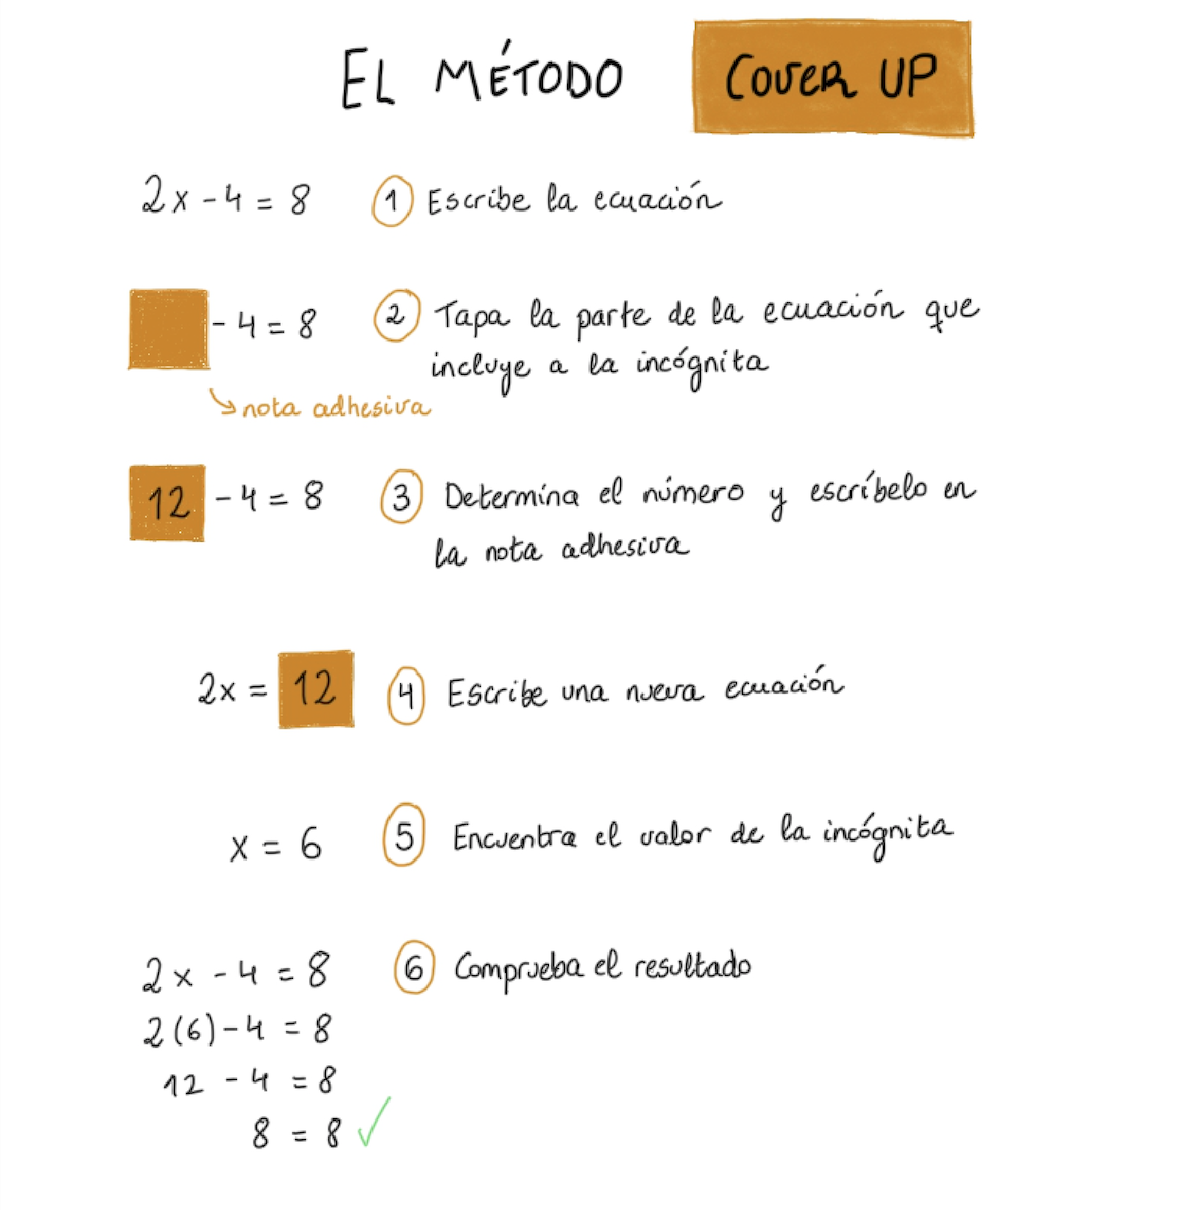 EL MÉTODO COVER UP
2x - 4 = 8 1 Escribe la ecuación
- 4 = 8 2 Tapa la parte de la ecuación que
incluye a la incógnita
nota adhesiva
12 - 4 = 8 3 Determina el número y escríbelo en
la nota adhesiva
2x = 12 4 Escribe una nueva ecuación
x = 6 5 Encuentra el valor de la incógnita
2x - 4 = 8 6 Comprueba el resultado
2(6) - 4 = 8
12 - 4 = 8
8 = 8 ✓